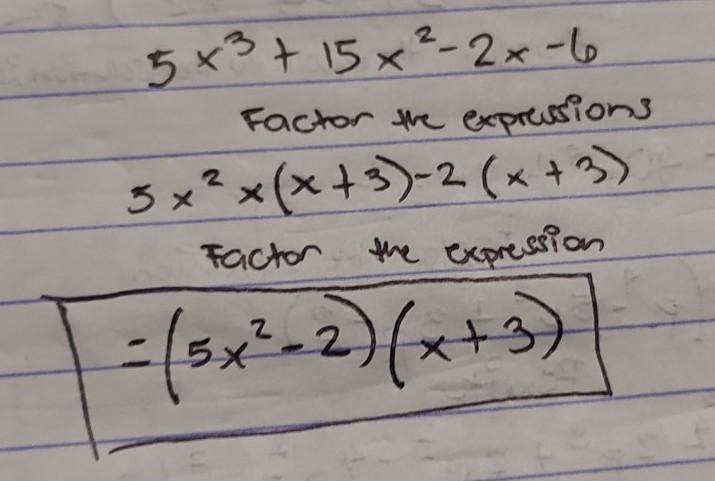 5x³ + 15x² - 2x - 6
Factor the expressions
5x² x (x + 3) - 2 (x + 3)
Factor the expression
= (5x² - 2) (x + 3)